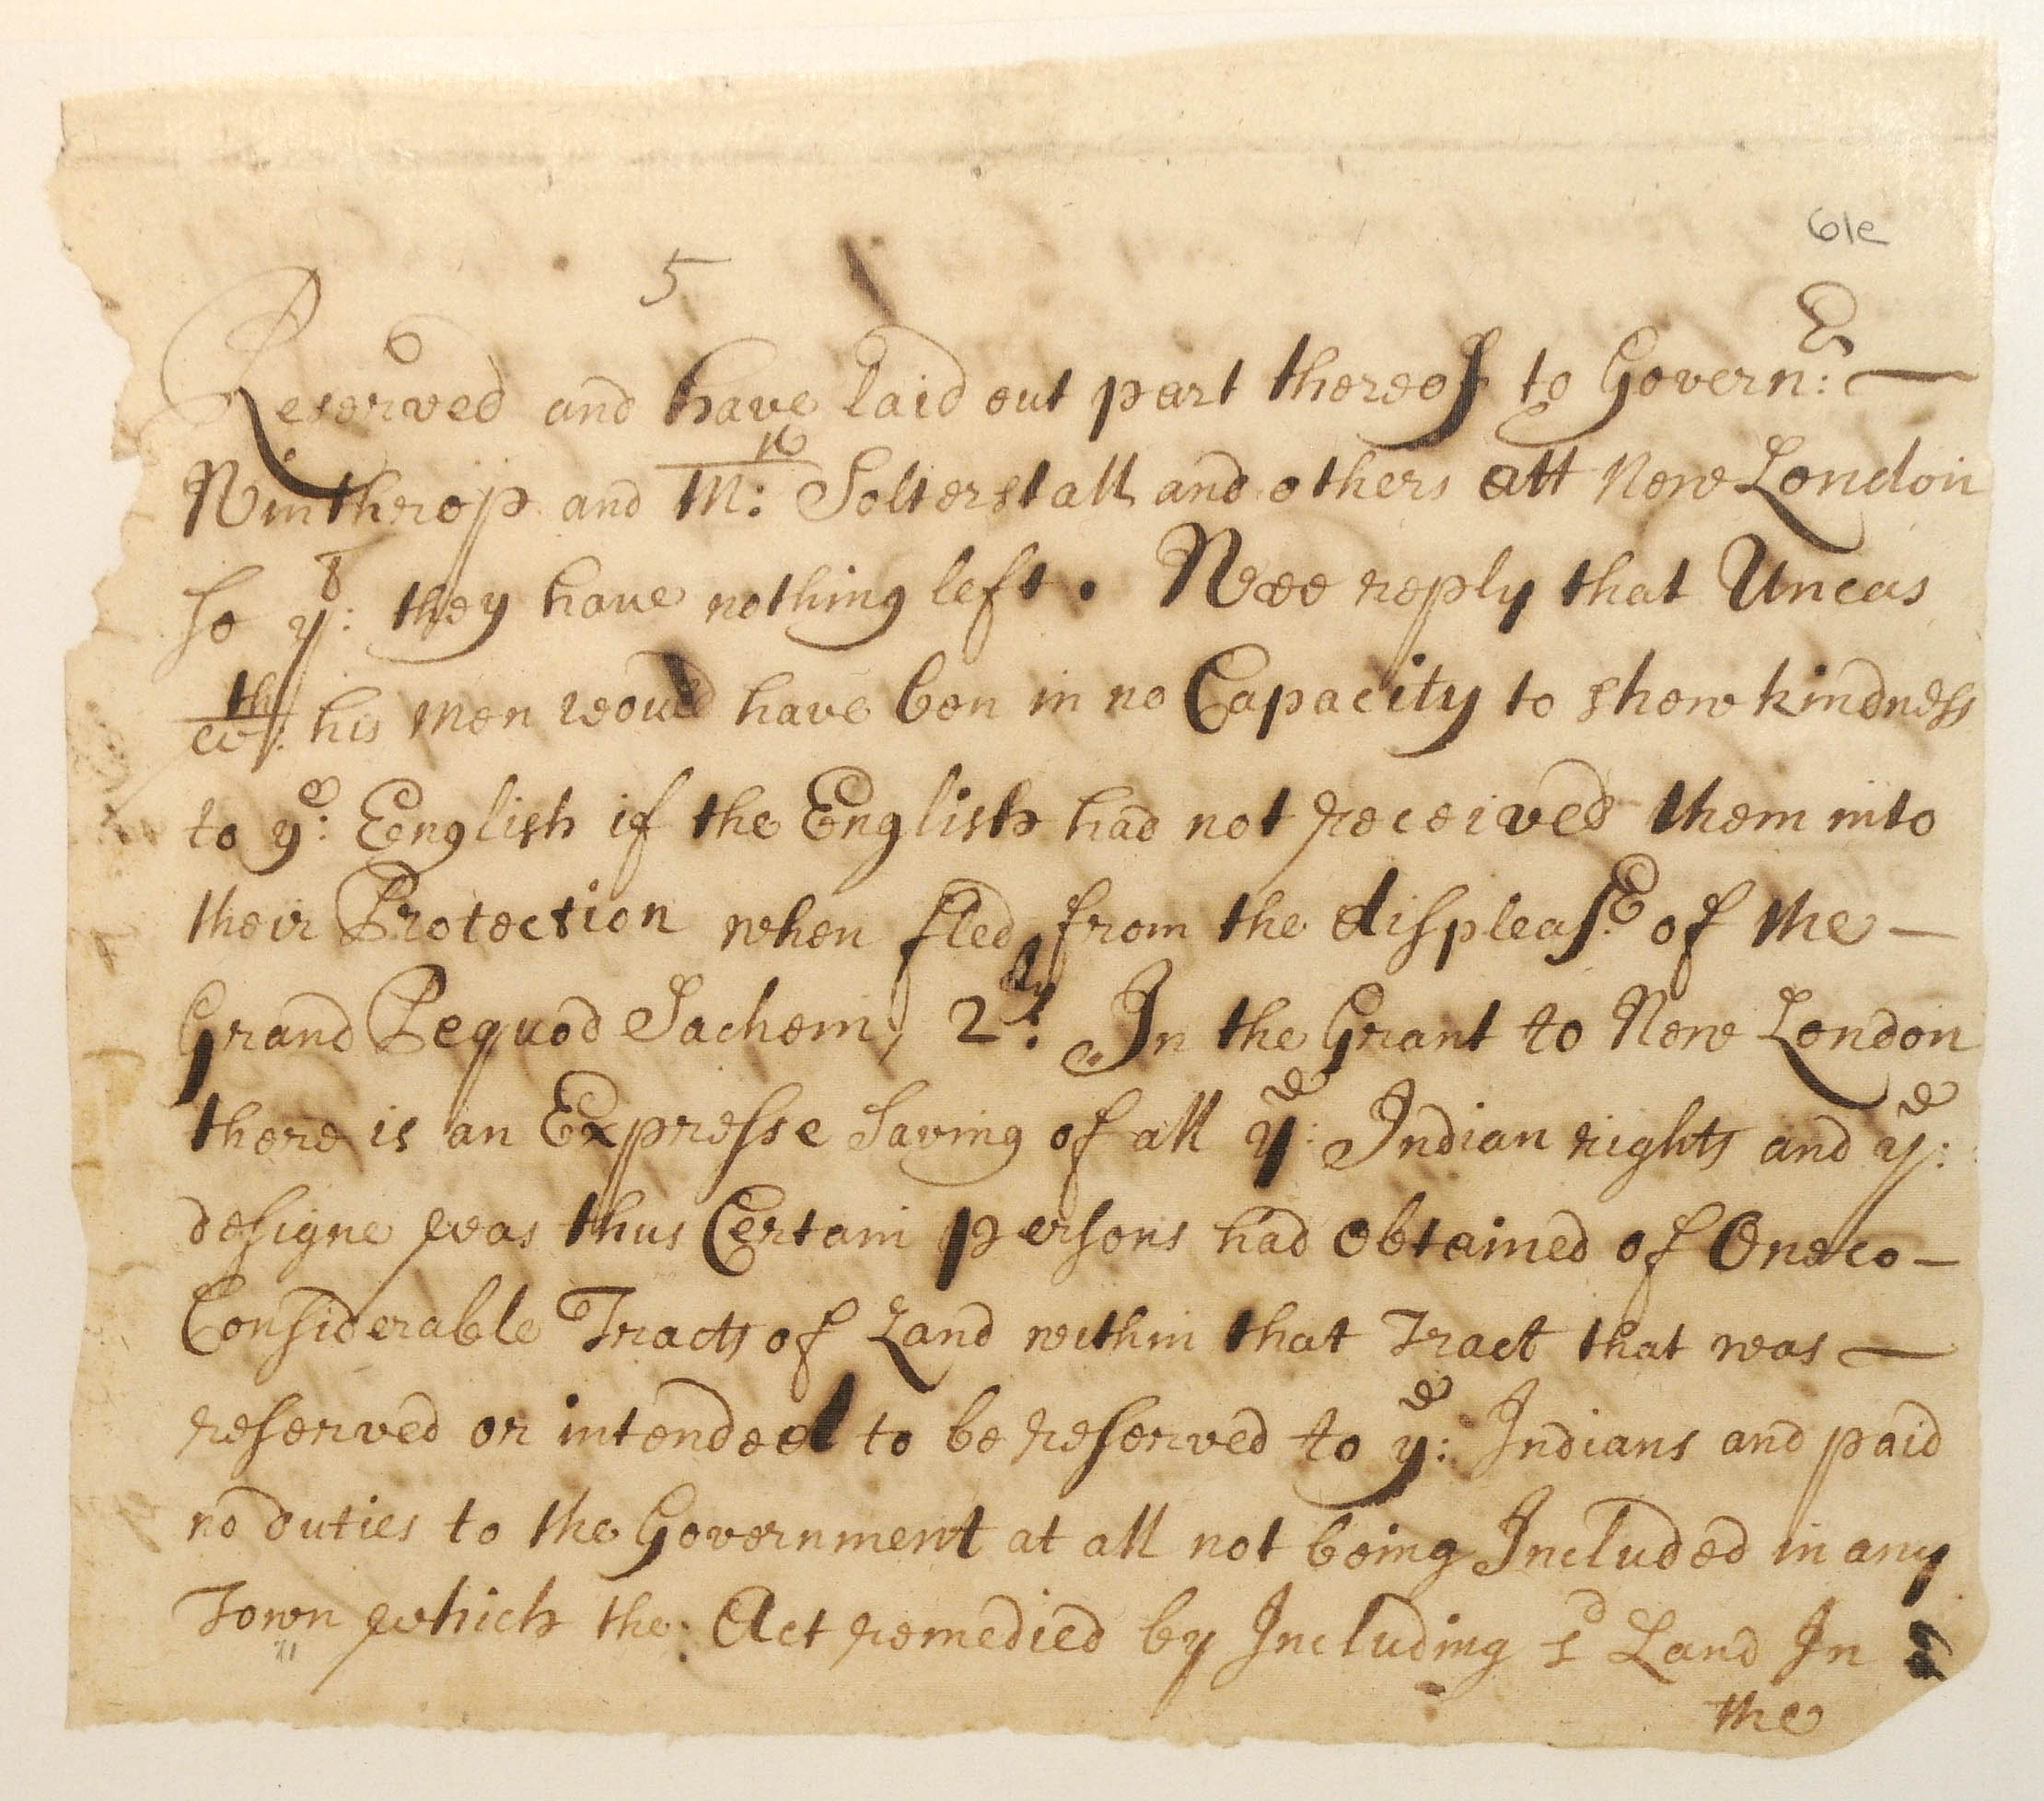 61e
5
Reserved and have laid out part thereof to Govern:r —
Winthrop and Mr: Solterstall and others att New London
so yt: they have nothing left. Wee reply that Uncas
wth: his men would have ben in no Capacity to shew kindness
to ye: English if the English had not received them into
their Protection when fled from the displeasre of the —
Grand Pequod Sachem, 2ly: In the Grant to New London
there is an Expresse Saving of all ye: Indian rights and ye:
designe was thus Certain persons had obtained of Oneco —
Considerable Tracts of Land within that Tract that was —
reserved or intended to be reserved to ye: Indians and paid
no duties to the Government at all not being Included in any
Town which the Act remedied by Including sd Land In
the